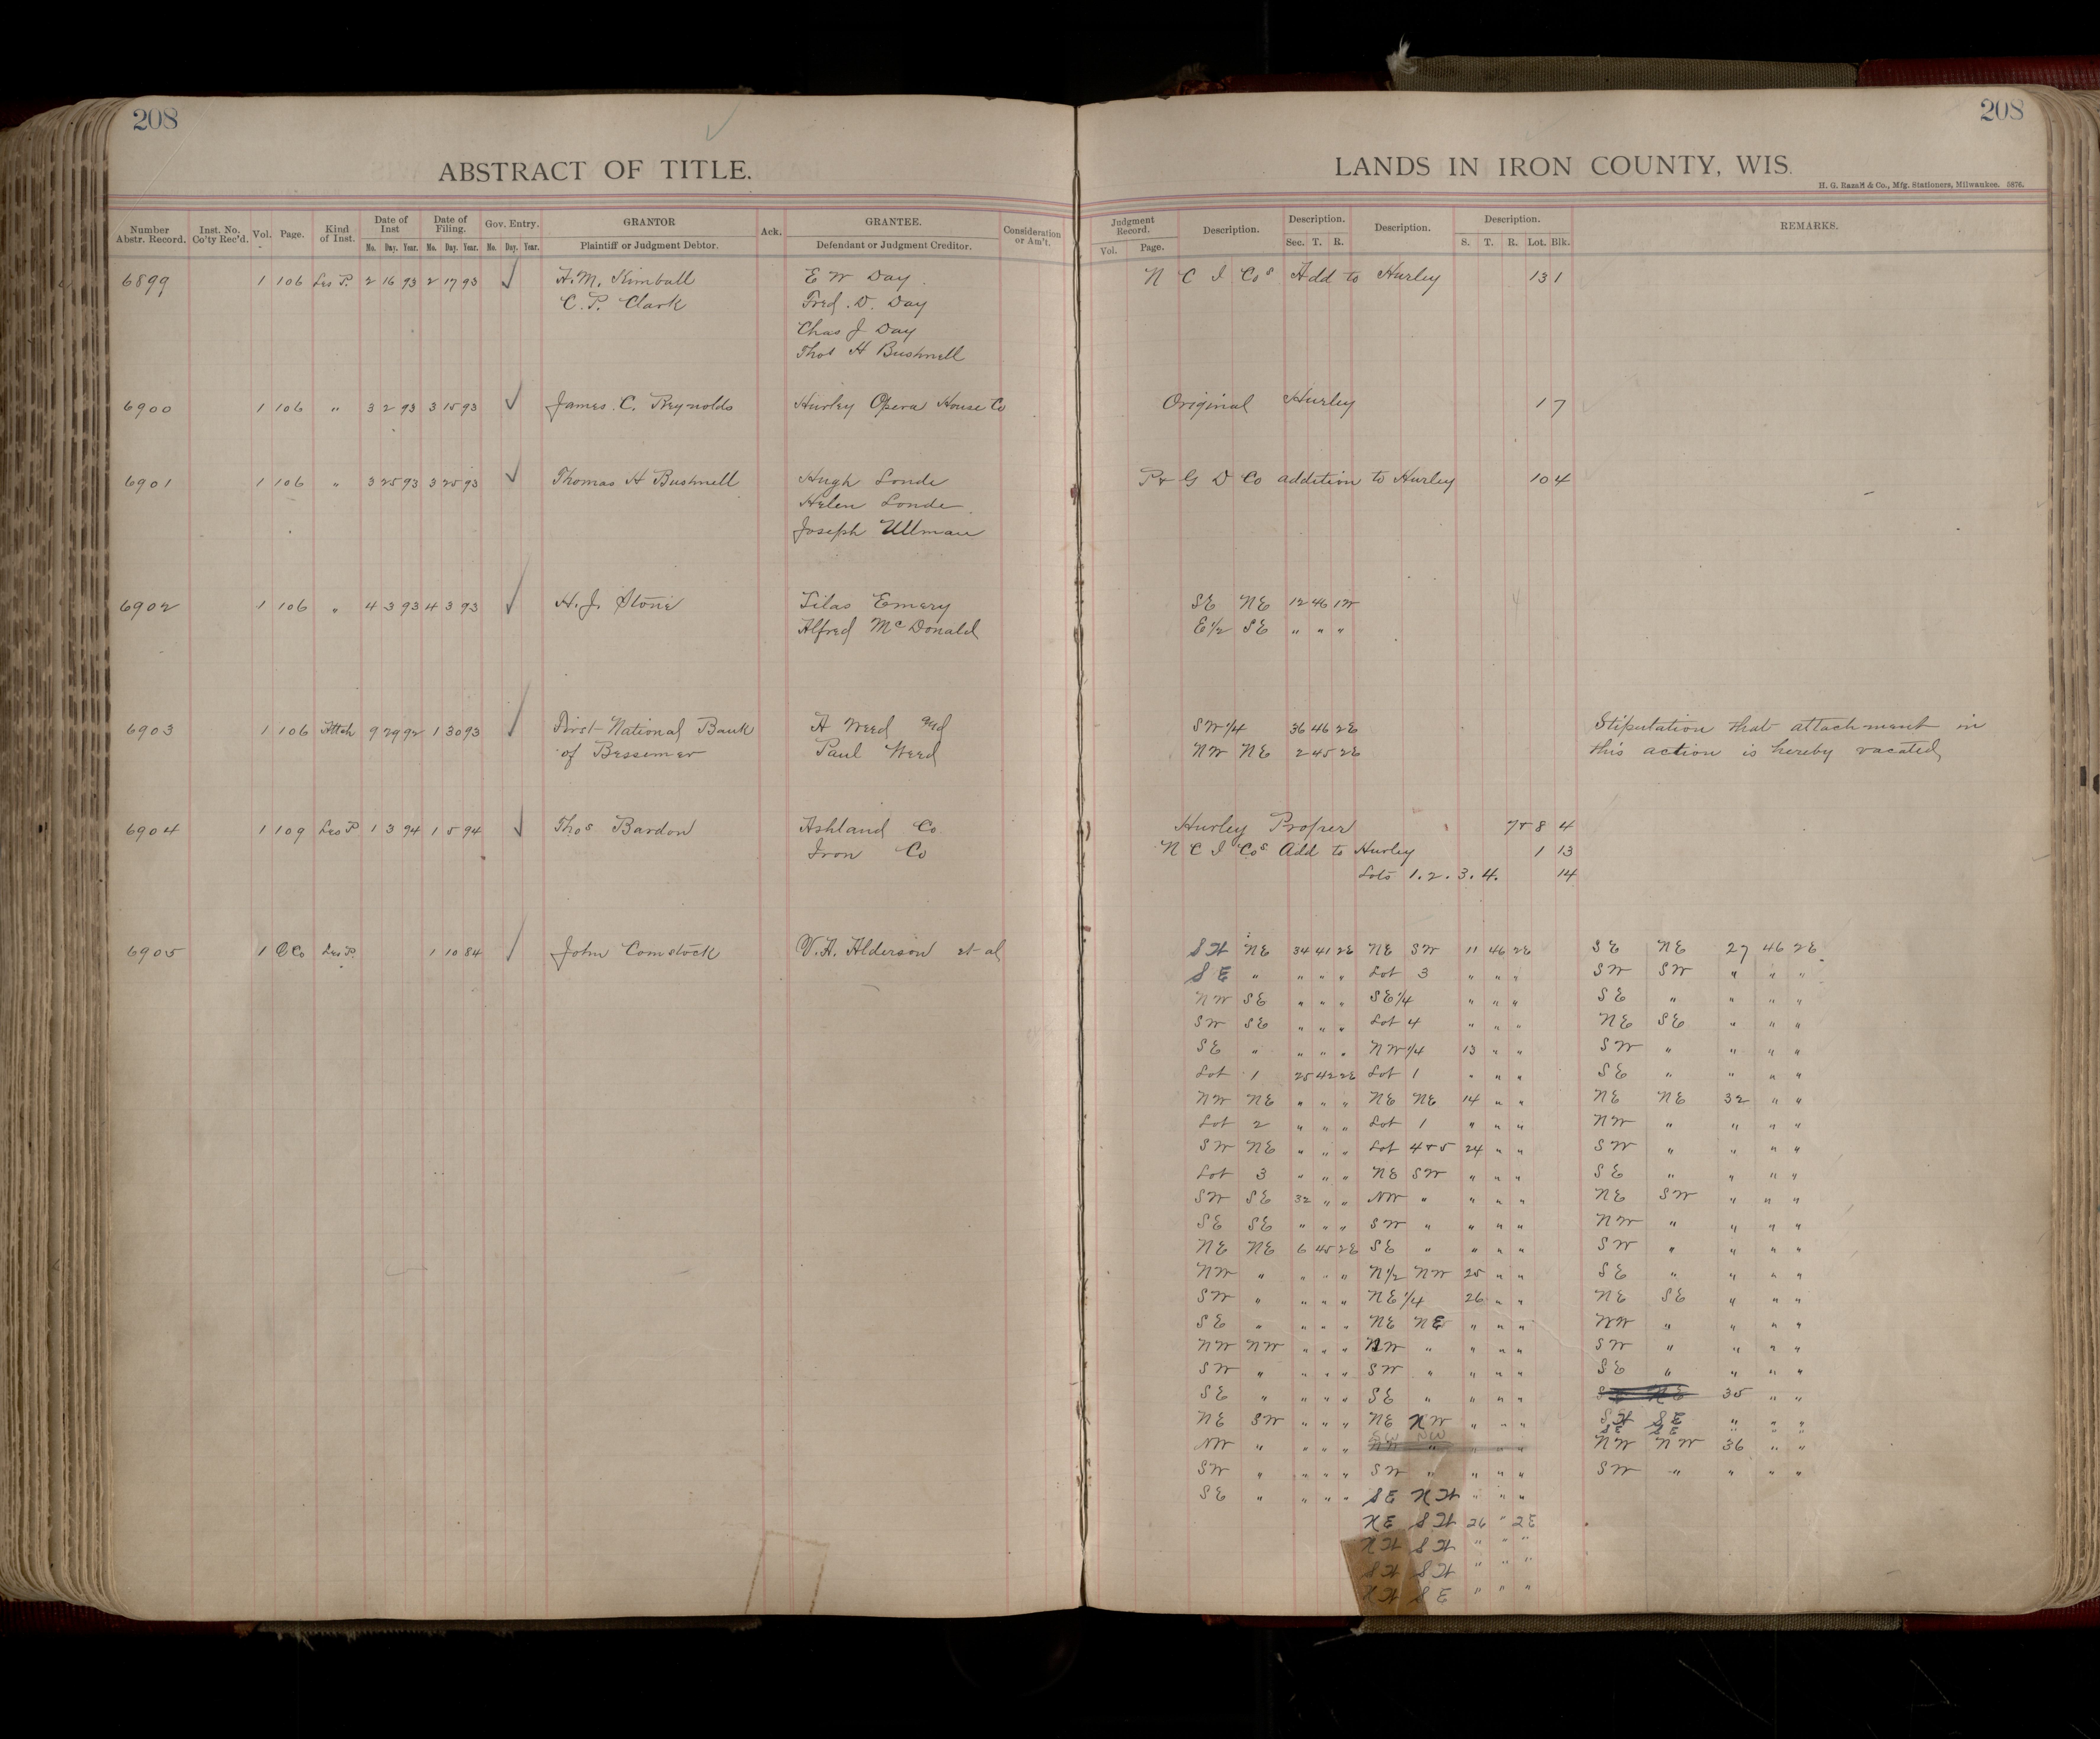 208
208
ABSTRACT OF TITLE.
LANDS IN IRON COUNTY, WIS.
H. G. Razall & Co., Mfg. Stationers, Milwaukee. 5876.
Number Abstr. Record. Inst. No. Co'ty Rec'd. Vol. Page. Kind of Inst. Date of Inst Mo. Day. Year. Date of Filing. Mo. Day. Year. Gov. Entry. Mo. Day. Year. GRANTOR Plaintiff or Judgment Debtor. Ack. GRANTEE. Defendant or Judgment Creditor. Consideration or Am't.
Judgment Record. Vol. Page. Description. Description. Sec. T. R. Description. Description. S. T. R. Lot. Blk. REMARKS.
6899 1 106 Les P. 2 16 93 2 17 93 ✓ H. M. Kimball E W Day N C I Cos Add to Hurley 13 1
C. P. Clark Fred. D. Day
Chas J Day
Thos H Bushnell
6900 1 106 " 3 2 93 3 15 93 ✓ James. C. Reynolds Hurley Opera House Co Original Hurley 1 7
6901 1 106 " 3 25 93 3 25 93 ✓ Thomas H Bushnell Hugh Londe P & G D Co addition to Hurley 10 4
Helen Londe
Joseph Ullman
6902 1 106 " 4 3 93 4 3 93 ✓ H. J. Stone Silas Emery SE NE 12 46 1W
Alfred McDonald E 1/2 SE " " "
6903 1 106 Attch 9 29 92 1 30 93 ✓ First National Bank A Weed and SW 1/4 36 46 2E Stipulation that attachment in
of Bessemer Paul Weed NW NE 2 45 2E this action is hereby vacated
6904 1 109 Les P 1 3 94 1 5 94 ✓ Thos Bardon Ashland Co Hurley Proper 7 & 8 4
Iron Co N C I Cos Add to Hurley 1 13
Lots 1. 2. 3. 4. 14
6905 1 Les P. 1 10 84 ✓ John Comstock V. A. Alderson et al SW NE 34 41 2E NE SW 11 46 2E SE NE 27 46 2E
SE " " " " Lot 3 " " " SW SW " " "
NW SE " " " SE 1/4 " " " SE " " " "
SW SE " " " Lot 4 " " " NE SE " " "
SE " " " " NW 1/4 13 " " SW " " " "
Lot 1 25 42 2E Lot 1 " " " SE " " " "
NW NE " " " NE NE 14 " " NE NE 32 " "
Lot 2 " " " Lot 1 " " " NW " " " "
SW NE " " " Lot 4 & 5 24 " " SW " " " "
Lot 3 " " " NE SW " " " SE " " " "
SW SE 32 " " NW " " " " NE SW " " "
SE SE " " " SW " " " " NW " " " "
NE NE 6 45 2E SE " " " " SW " " " "
NW " " " " N 1/2 NW 25 " " SE " " " "
SW " " " " NE 1/4 26 " " NE SE " " "
SE " " " " NE NE " " " NW " " " "
NW NW " " " NW " " " " SW " " " "
SW " " " " SW " " " " SE " " " "
SE " " " " SE " " " " SE NE 35 " "
NE SW " " " NE NW " " " SW SE " " "
SE SE " " "
NW " " " " NW " " " " NW NW 36 " "
SW " " " " SW " " " " SW " " " "
SE " " " " SE NW " " "
NE SW 26 " 2E
NW SW " " "
SW SW " " "
NW SE " " "